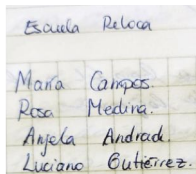 Escuela Reloca
María Campos.
Rosa Medina.
Anjela Andrade
Luciano Gutiérrez.